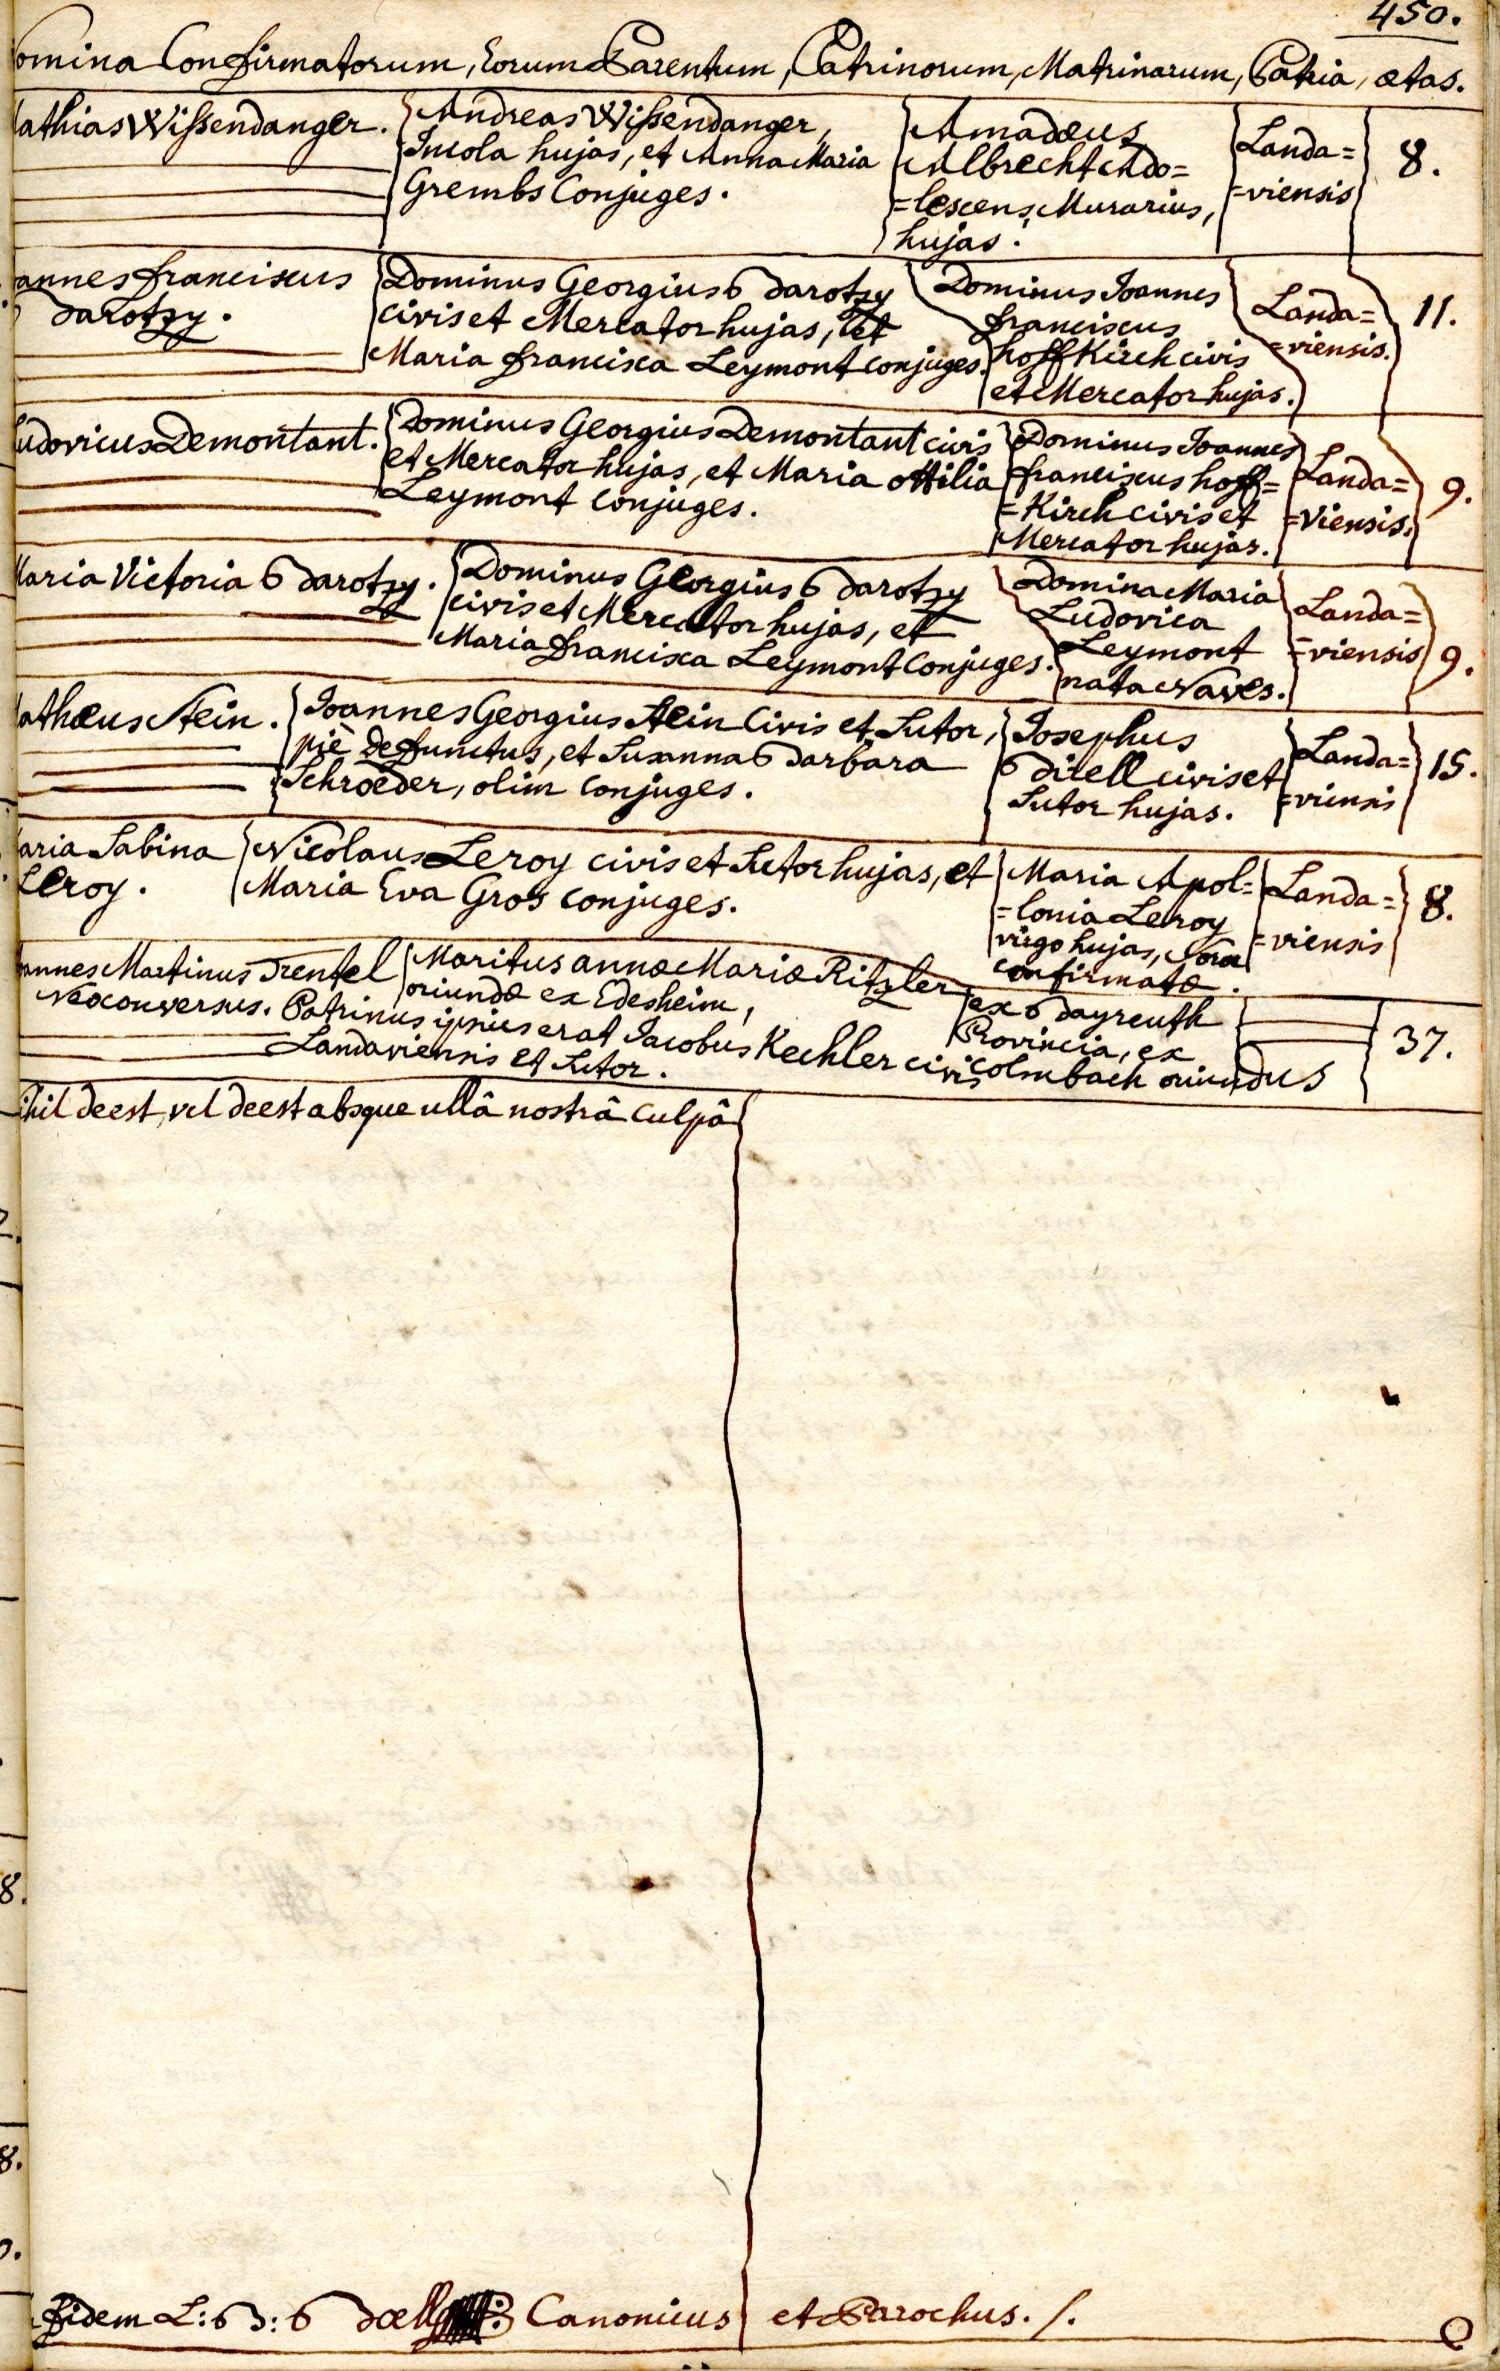 450.
omina Confirmatorum, Eorum Parentum, Patrinorum, Matrinarum, Patria, ætas.
athias Wissendanger.
Andreas Wissendanger,
Incola hujas, et Anna Maria
Grembs Conjuges.
Amadæus
Albrecht Ado=
=lescens, Murarius,
hujas.
Landa=
=viensis
8.
annes franciscus
Barotzy.
Dominus Georgius Barotzy
civis et Mercator hujas, et
Maria francisca Leymont conjuges.
Dominus Joannes
franciscus
hoffkirch civis
et Mercator hujas.
Landa=
=viensis.
11.
udovicus Demontant.
Dominus Georgius Demontant civis
et Mercator hujas, et Maria ottilia
Leymont conjuges.
Dominus Joannes
franciscus hoff=
=Kirch civis et
Mercator hujas.
Landa=
=viensis.
9.
aria Victoria Barotzy.
Dominus Georgius Barotzy
civis et Mercator hujas, et
Maria francisca Leymont Conjuges.
Domina Maria
Ludovica
Leymont
nata Naves.
Landa=
=viensis
9.
athæus Stein.
Joannes Georgius Stein Civis et Sutor,
piè defunctus, et Susanna Barbara
Schroeder, olim conjuges.
Josephus
Bitell civis et
Sutor hujas.
Landa=
=viensis
15.
aria Sabina
Leroy.
Nicolaus Leroy civis et Sutor hujas, et
Maria Eva Gros conjuges.
Maria Apol=
=lonia Leroy
virgo hujas, Soror
confirmatæ.
Landa=
=viensis
8.
annes Martinus Trentel
Neoconversus. Patrinus ipsius erat Jacobus Kechler civis
Landaviensis et Sutor.
Maritus annæ Mariæ Ritzler
oriundæ ex Edesheim,
ex Bayreuth
Provincia, ex
Colmbach oriundus
37.
ihil deest, vel deest absque ullâ nostrâ culpâ
fidem L: B: Bæll Canonicus et Parochus. /.